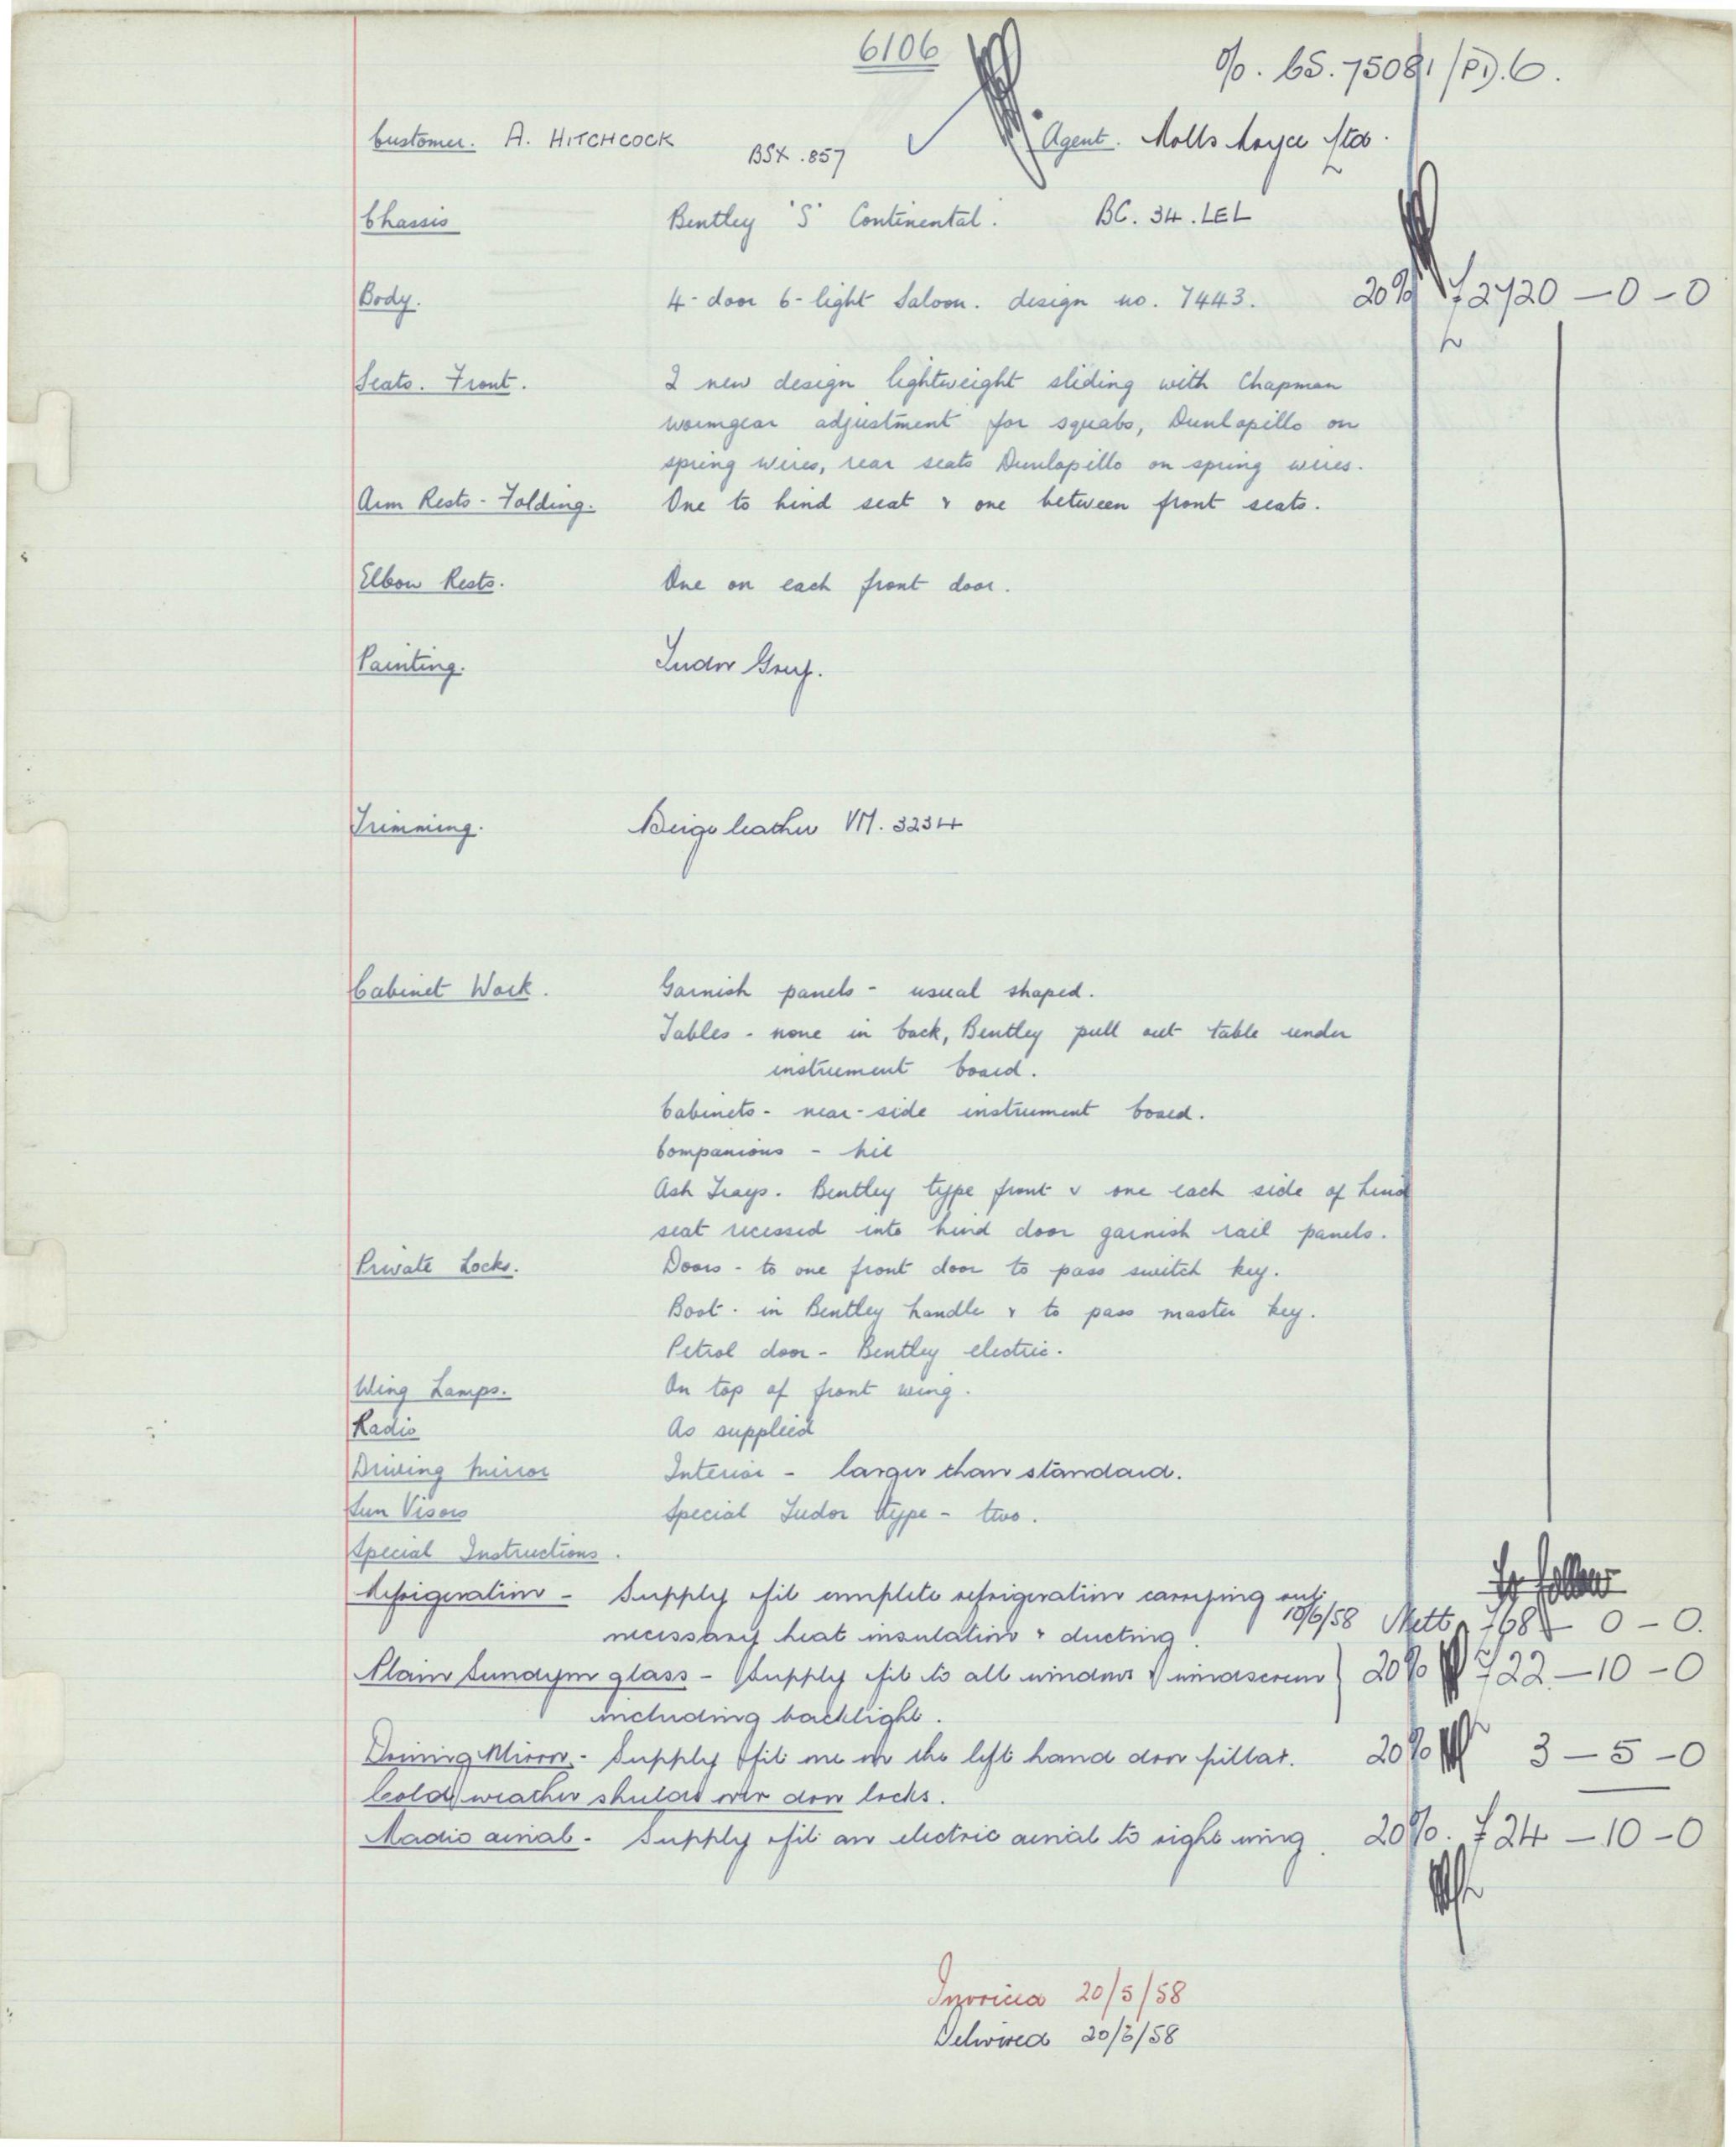 6106
O/o. CS. 75081/PD.6.
Customer. A. HITCHCOCK BSX.857 Agent. Rolls Royce Ltd.
Chassis Bentley 'S' Continental. BC. 34. LEL
Body. 4-door 6-light Saloon. design no. 7443. 20% £2720-0-0
Seats. Front. 2 new design lightweight sliding with Chapman
wormgear adjustment for squabs, Dunlopillo on
spring wires, rear seats Dunlopillo on spring wires.
Arm Rests - Folding. One to hind seat & one between front seats.
Elbow Rests. One on each front door.
Painting. Tudor Grey.
Trimming. Beige leather VM. 3234
Cabinet Work. Garnish panels - usual shaped.
Tables - none in back, Bentley pull out table under
instrument board.
Cabinets - near-side instrument board.
Companions - Nil
Ash Trays. Bentley type front & one each side of hind
seat recessed into hind door garnish rail panels.
Private Locks. Doors - to one front door to pass switch key.
Boot - in Bentley handle & to pass master key.
Petrol door - Bentley electric.
Wing Lamps. On top of front wing.
Radio As supplied
Driving Mirror Interior - larger than standard.
Sun Visors Special Tudor type - two.
Special Instructions.
To follow
Refrigeration - Supply & fit complete refrigeration carrying out
necessary heat insulation & ducting. 10/6/58 Nett 0-0.
Plain Sundym glass - Supply & fit to all windows & windscreen } 20% £22-10-0
including backlight.
Driving Mirror. - Supply & fit one on the left hand door pillar. 20% 3-5-0
Cold weather shutters over door locks.
Radio aerial. - Supply & fit an electric aerial to right wing. 20%. £24-10-0
Invoiced 20/5/58
Delivered 20/5/58